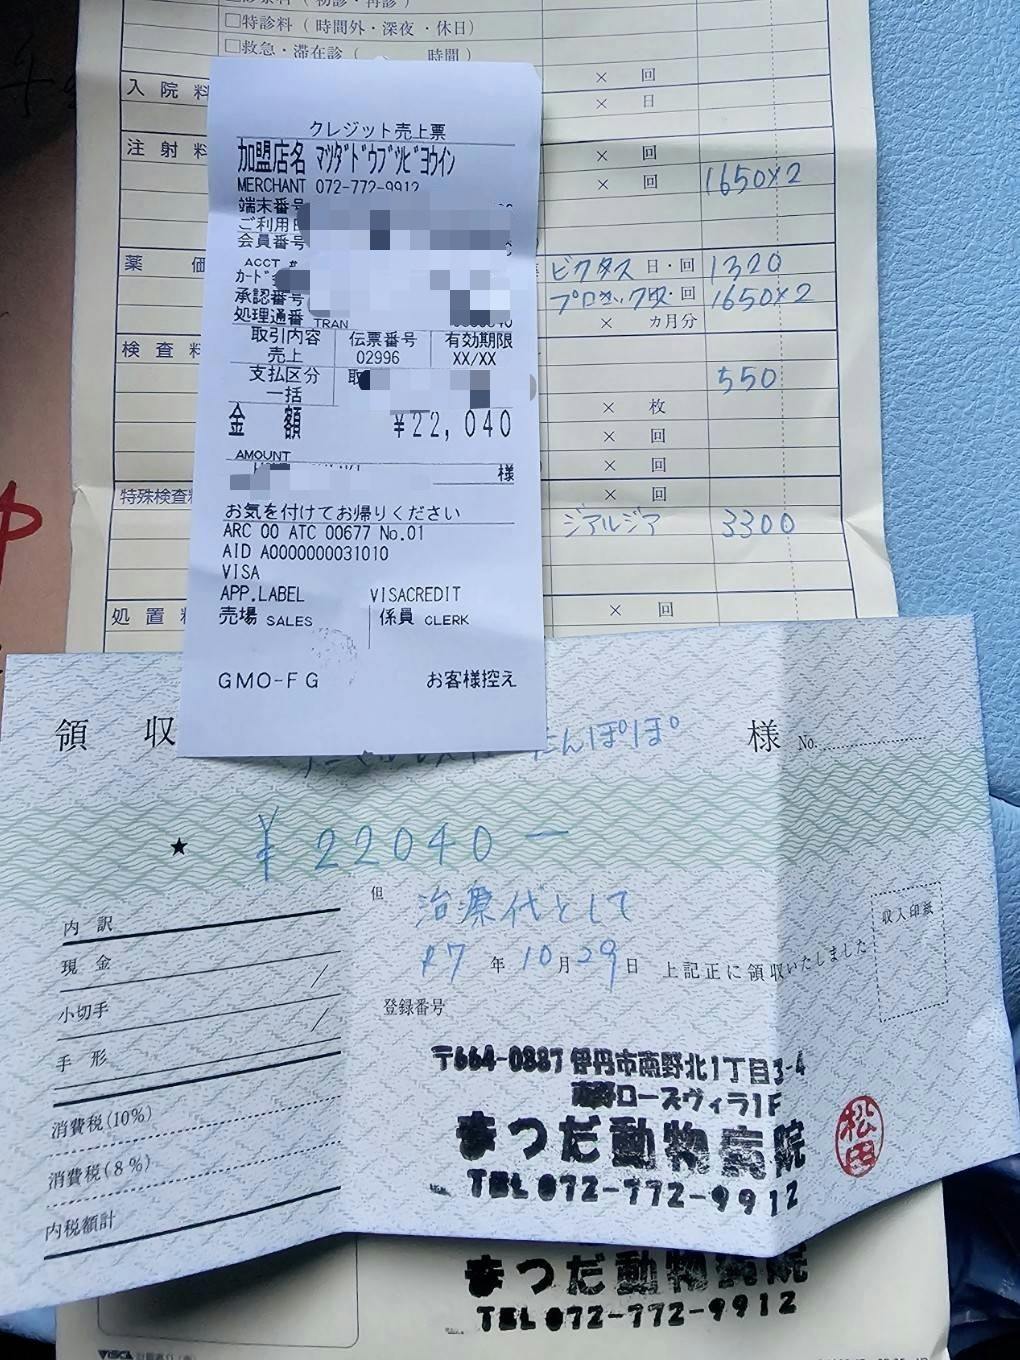 □特診料（時間外・深夜・休日）
□救急・滞在診（　　時間）
× 回
入院料
× 日
注射料
× 回
× 回 1650×2
薬価
ビクタス 日・回 1320
プロロック 回 1650×2
× カ月分
検査料
550
× 枚
× 回
× 回
特殊検査料 × 回
ジアルジア 3300
処置料 × 回
クレジット売上票
加盟店名 ﾏﾂﾀﾞﾄﾞｳﾌﾞﾂﾋﾞﾖｳｲﾝ
MERCHANT 072-772-9912
端末番号
ご利用日
会員番号
ACCT #
ｶｰﾄﾞ
承認番号
処理通番 TRAN
取引内容 伝票番号 有効期限
売上 02996 XX/XX
支払区分 取
一括
金額 ¥22,040
AMOUNT
様
お気を付けてお帰りください
ARC 00 ATC 00677 No.01
AID A0000000031010
VISA
APP.LABEL VISACREDIT
売場 SALES 係員 CLERK
GMO-FG お客様控え
領収 たんぽぽ 様 No.
★ ¥22040ー
但 治療代として
R7年10月29日 上記正に領収いたしました
収入印紙
登録番号
内訳
現金
小切手
手形
消費税(10%)
消費税(8%)
内税額計
〒664-0887 伊丹市南野北1丁目3-4
南野ローズヴィラ1F
まつだ動物病院
TEL 072-772-9912
松田
まつだ動物病院
TEL 072-772-9912